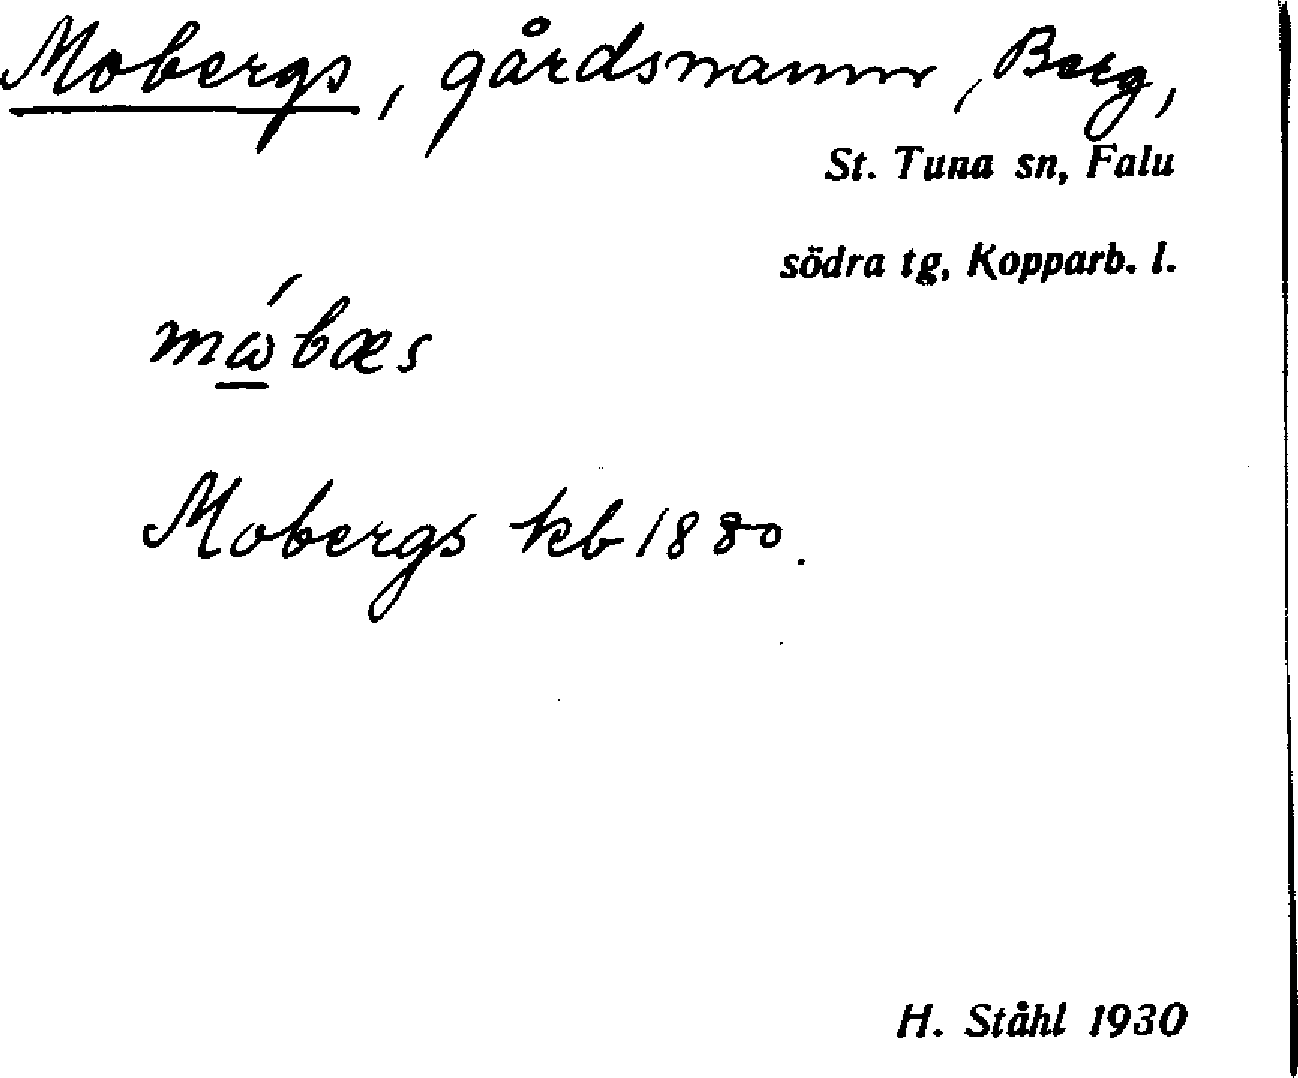 Mobergs, gårdsnamn, Berg,
St. Tuna sn, Falu
södra tg, Kopparb. l.
mώbæs
Mobergs kb 1880.
H. Ståhl 1930